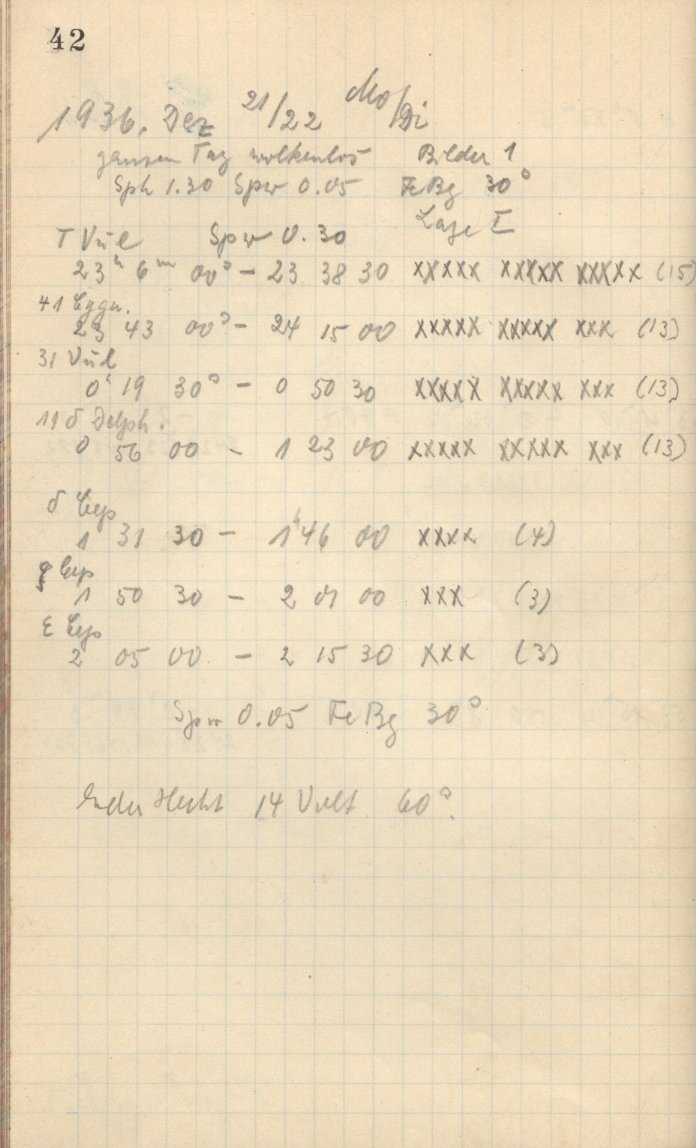 42
1936. Dez 21/22 Mo/Di
ganzen Tag wolkenlos Bilder 1
Sph 1.30 Spw 0.05 FeBg 30°
Lage I
T Vul Spw 0.30
23h 6m 00s – 23 38 30 xxxxx xxxxx xxxxx (15)
41 Cygn.
23 43 00s – 24 15 00 xxxxx xxxxx xxx (13)
31 Vul
0h 19 30s – 0 50 30 xxxxx xxxxx xxx (13)
11 δ Delph.
0 56 00 – 1 23 00 xxxxx xxxxx xxx (13)
δ Cep
1 31 30 – 1h 46 00 xxxx (4)
Cep
1 50 30 – 2 01 00 xxx (3)
ε Cep
2 05 00 – 2 15 30 xxx (3)
Spw 0.05 FeBg 30°
14 Volt 60°.